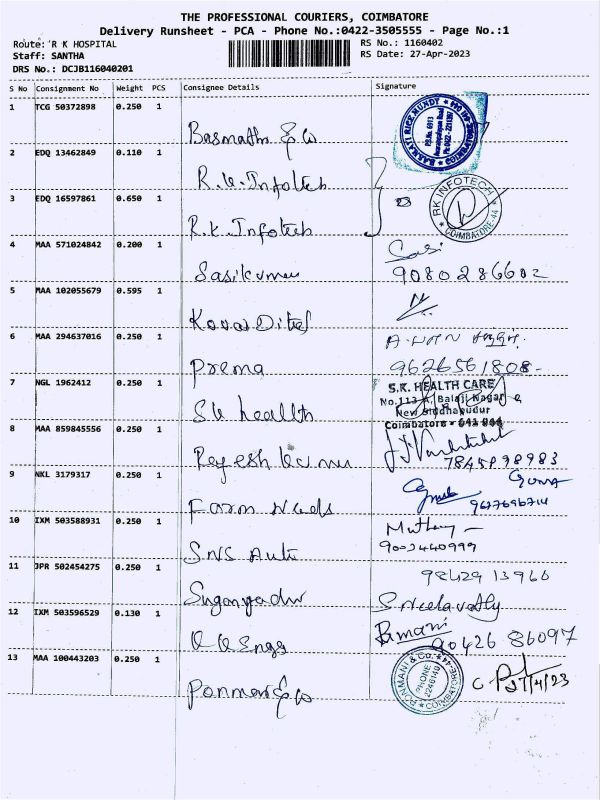 THE PROFESSIONAL COURIERS, COIMBATORE
Delivery Runsheet - PCA - Phone No.:0422-3505555 - Page No.:1
Route: R K HOSPITAL
RS No.: 1160402
Staff: SANTHA
RS Date: 27-Apr-2023
DRS No.: DCJB116040201
S No Consignment No Weight PCS Consignee Details Signature
1 TCG 50372898 0.250 1
BASMATI RICE MUNDY
2 EDQ 13462849 0.110 1
R.K. Infotech
3 EDQ 16597861 0.650 1
R.K. Infotech
RK INFOTECH
COIMBATORE-44
4 MAA 571024842 0.200 1
Sasikumar
Sasi
9080286602
5 MAA 102055679 0.595 1
6 MAA 294637016 0.250 1
Prema
9626561808
7 NGL 1962412 0.250 1
Sk health
S.K. HEALTH CARE
No.113 A, Balaji Nagar
New Siddhapudur
Coimbatore - 641 044
8 MAA 859845556 0.250 1
Rajesh kumar
7845898983
9 NKL 3179317 0.250 1
Farm Needs
GUNA
10 IXM 503588931 0.250 1
SNS Auto
9003440999
11 JPR 502454275 0.250 1
98429 13960
Sreelavathy
12 IXM 503596529 0.130 1
Ramani
90426 86097
13 MAA 100443203 0.250 1
Ponmani & Co
PONMANI & Co.
PHONE
2246149
COIMBATORE-44
27/4/23